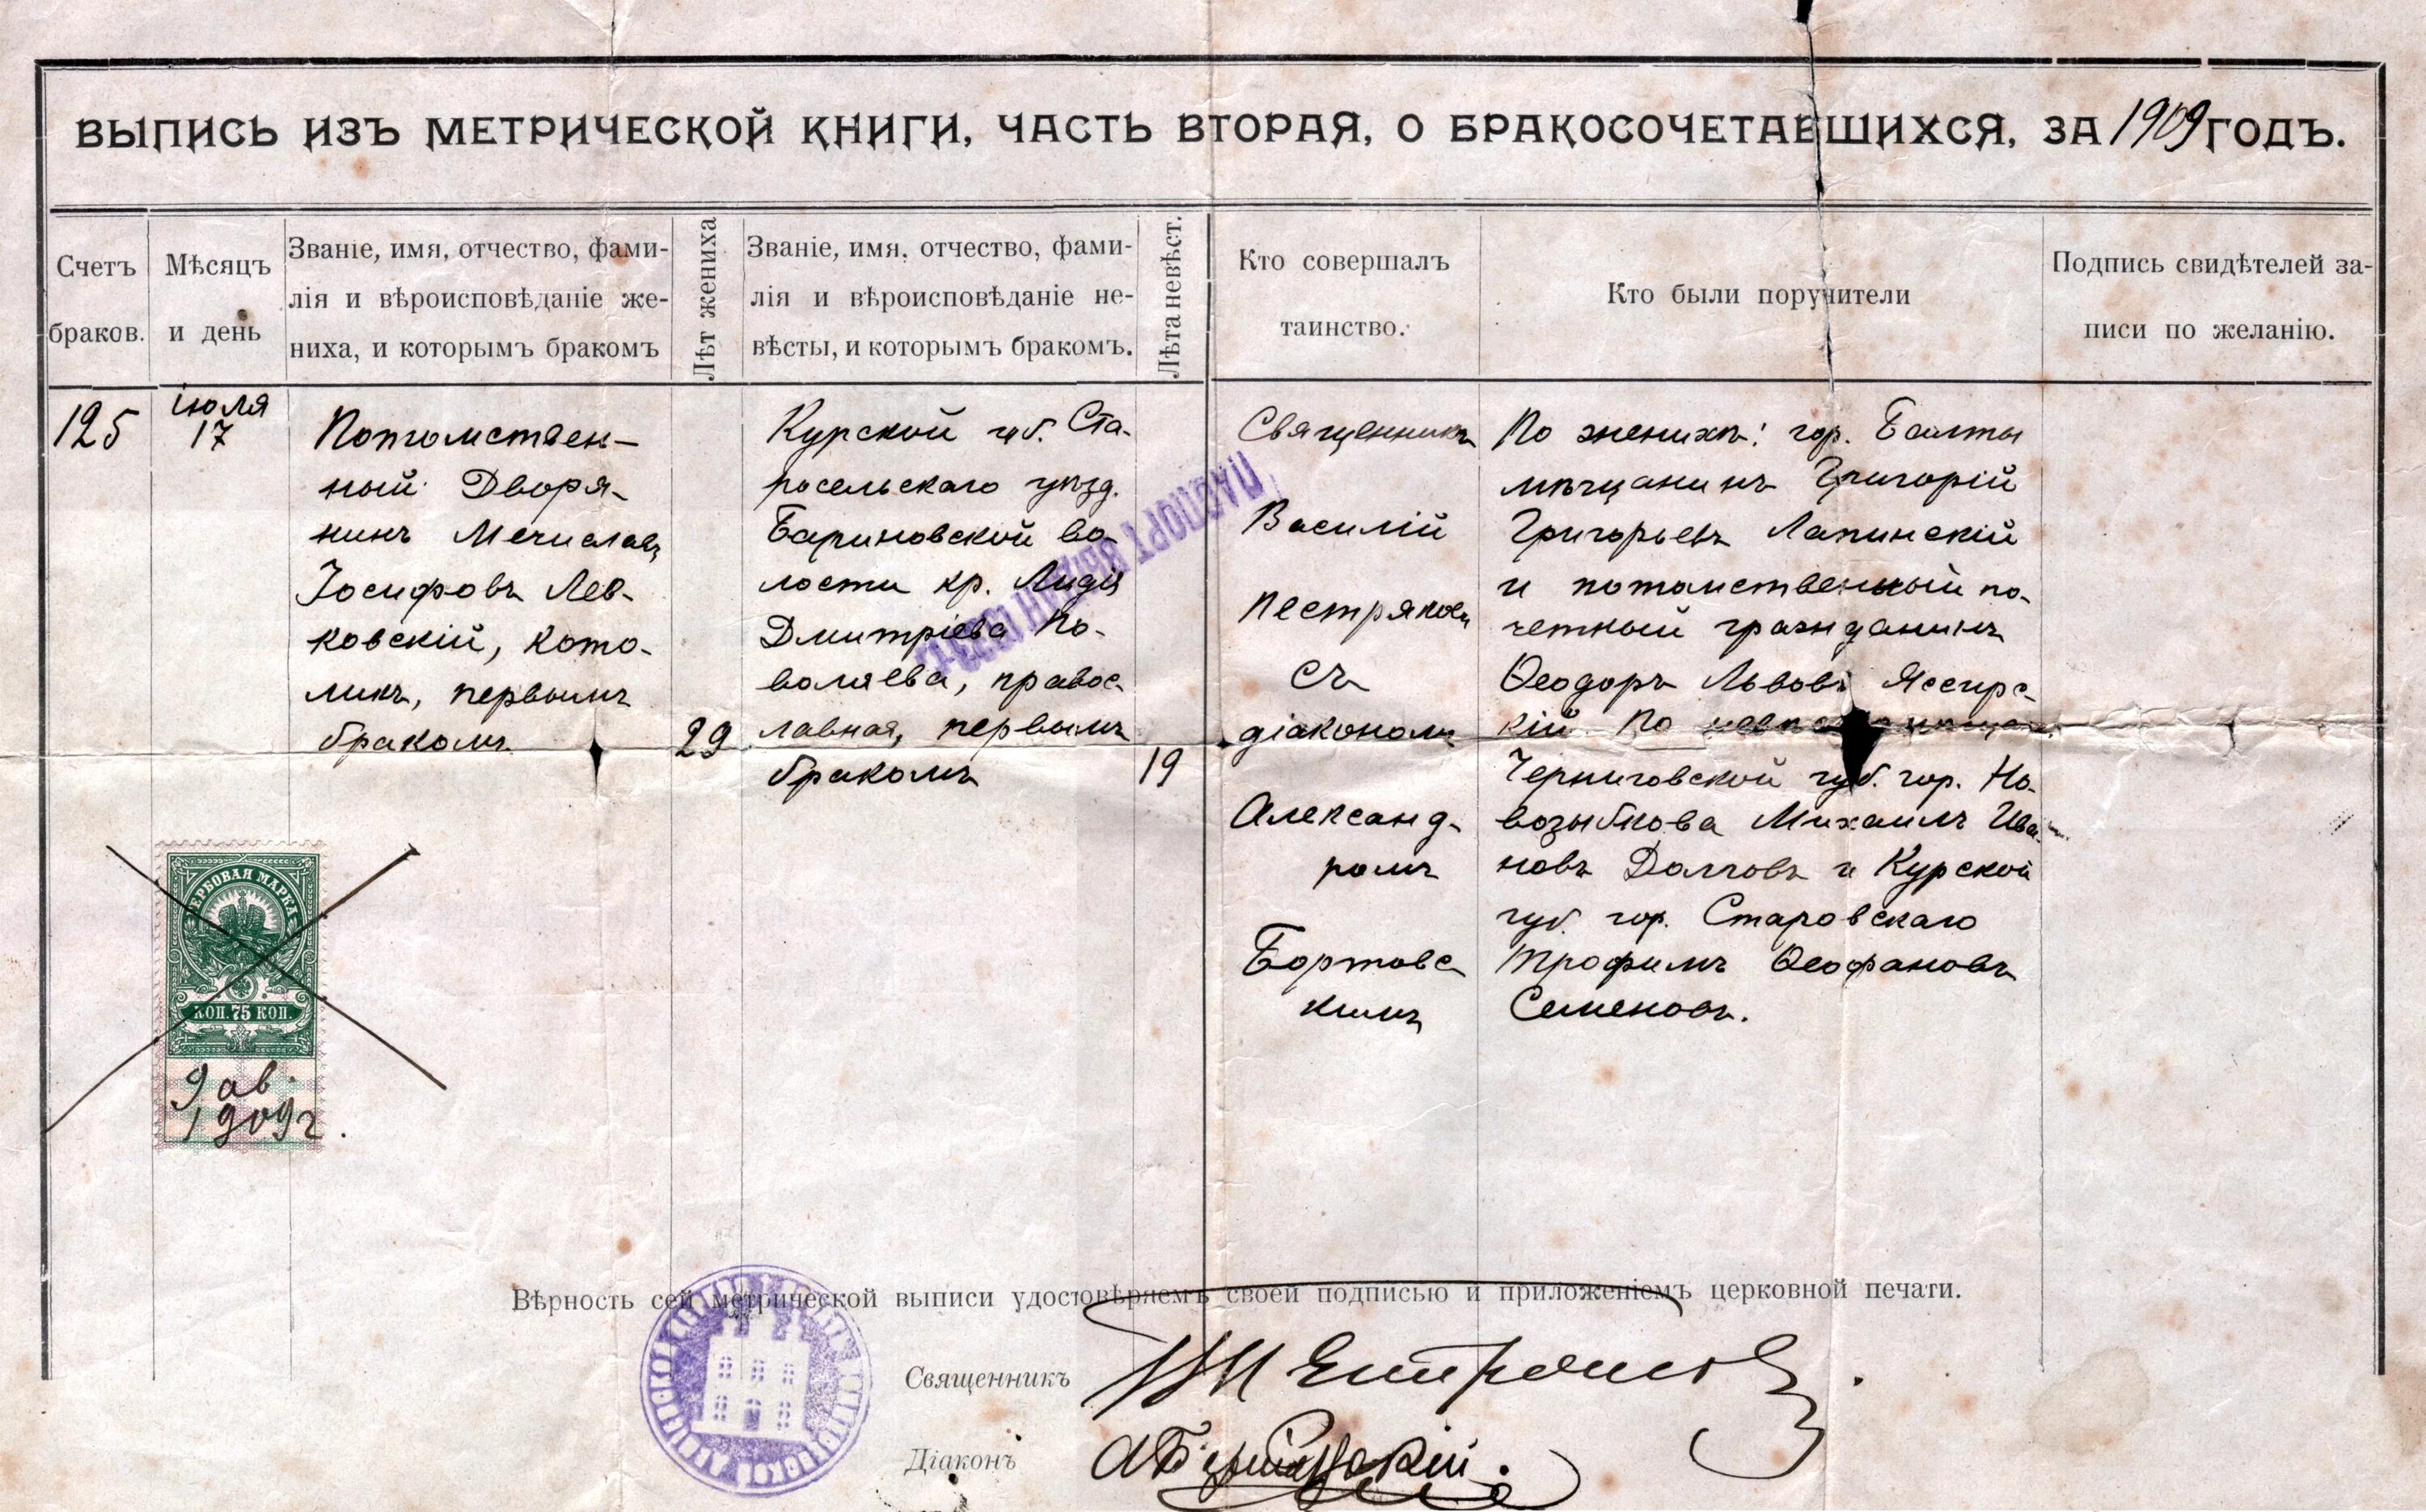 ВЫПИСЬ ИЗЪ МЕТРИЧЕСКОЙ КНИГИ, ЧАСТЬ ВТОРАЯ, О БРАКОСОЧЕТАВШИХСЯ, ЗА 1909 ГОДЪ.
Счетъ
браков.
Мѣсяцъ
и день
Званіе, имя, отчество, фами-
лія и вѣроисповѣданіе же-
ниха, и которымъ бракомъ
Лѣт жениха
Званіе, имя, отчество, фами-
лія и вѣроисповѣданіе не-
вѣсты, и которымъ бракомъ.
Лѣта невѣст.
Кто совершалъ
таинство.
Кто были поручители
Подпись свидѣтелей за-
писи по желанію.
125
іюля
17
Потомствен-
ный Дворя-
нинъ Мечиславъ
Іосифовъ Лев-
ковскій, като-
ликъ, первымъ
бракомъ
29
Курской губ. Ста-
росельскаго уѣзд.
Бариновской во-
лости кр. Лидія
Дмитріева По-
воляева, правос-
лавная, первымъ
бракомъ
19
Священникъ
Василій
Пестряковъ
съ
діакономъ
Александ-
ромъ
Бортовс-
кимъ
По женихѣ: гор. Балты
мѣщанинъ Григорій
Григорьевъ Лапинскій
и потомственный по-
четный гражданинъ
Ѳеодоръ Львовъ
кій. По
Черниговской губ. гор. Но-
возыбкова Михаилъ Ива-
новъ Долговъ и Курской
губ. гор. Старовскаго
Трофимъ Ѳеофановъ
Семеновъ.
ПАСПОРТ ВЫДАН
ГЕРБОВАЯ МАРКА
КОП. 75 КОП.
9 ав.
1909 г.
Вѣрность сей метрической выписи удостовѣряемъ своей подписью и приложеніемъ церковной печати.
Священникъ
Діаконъ